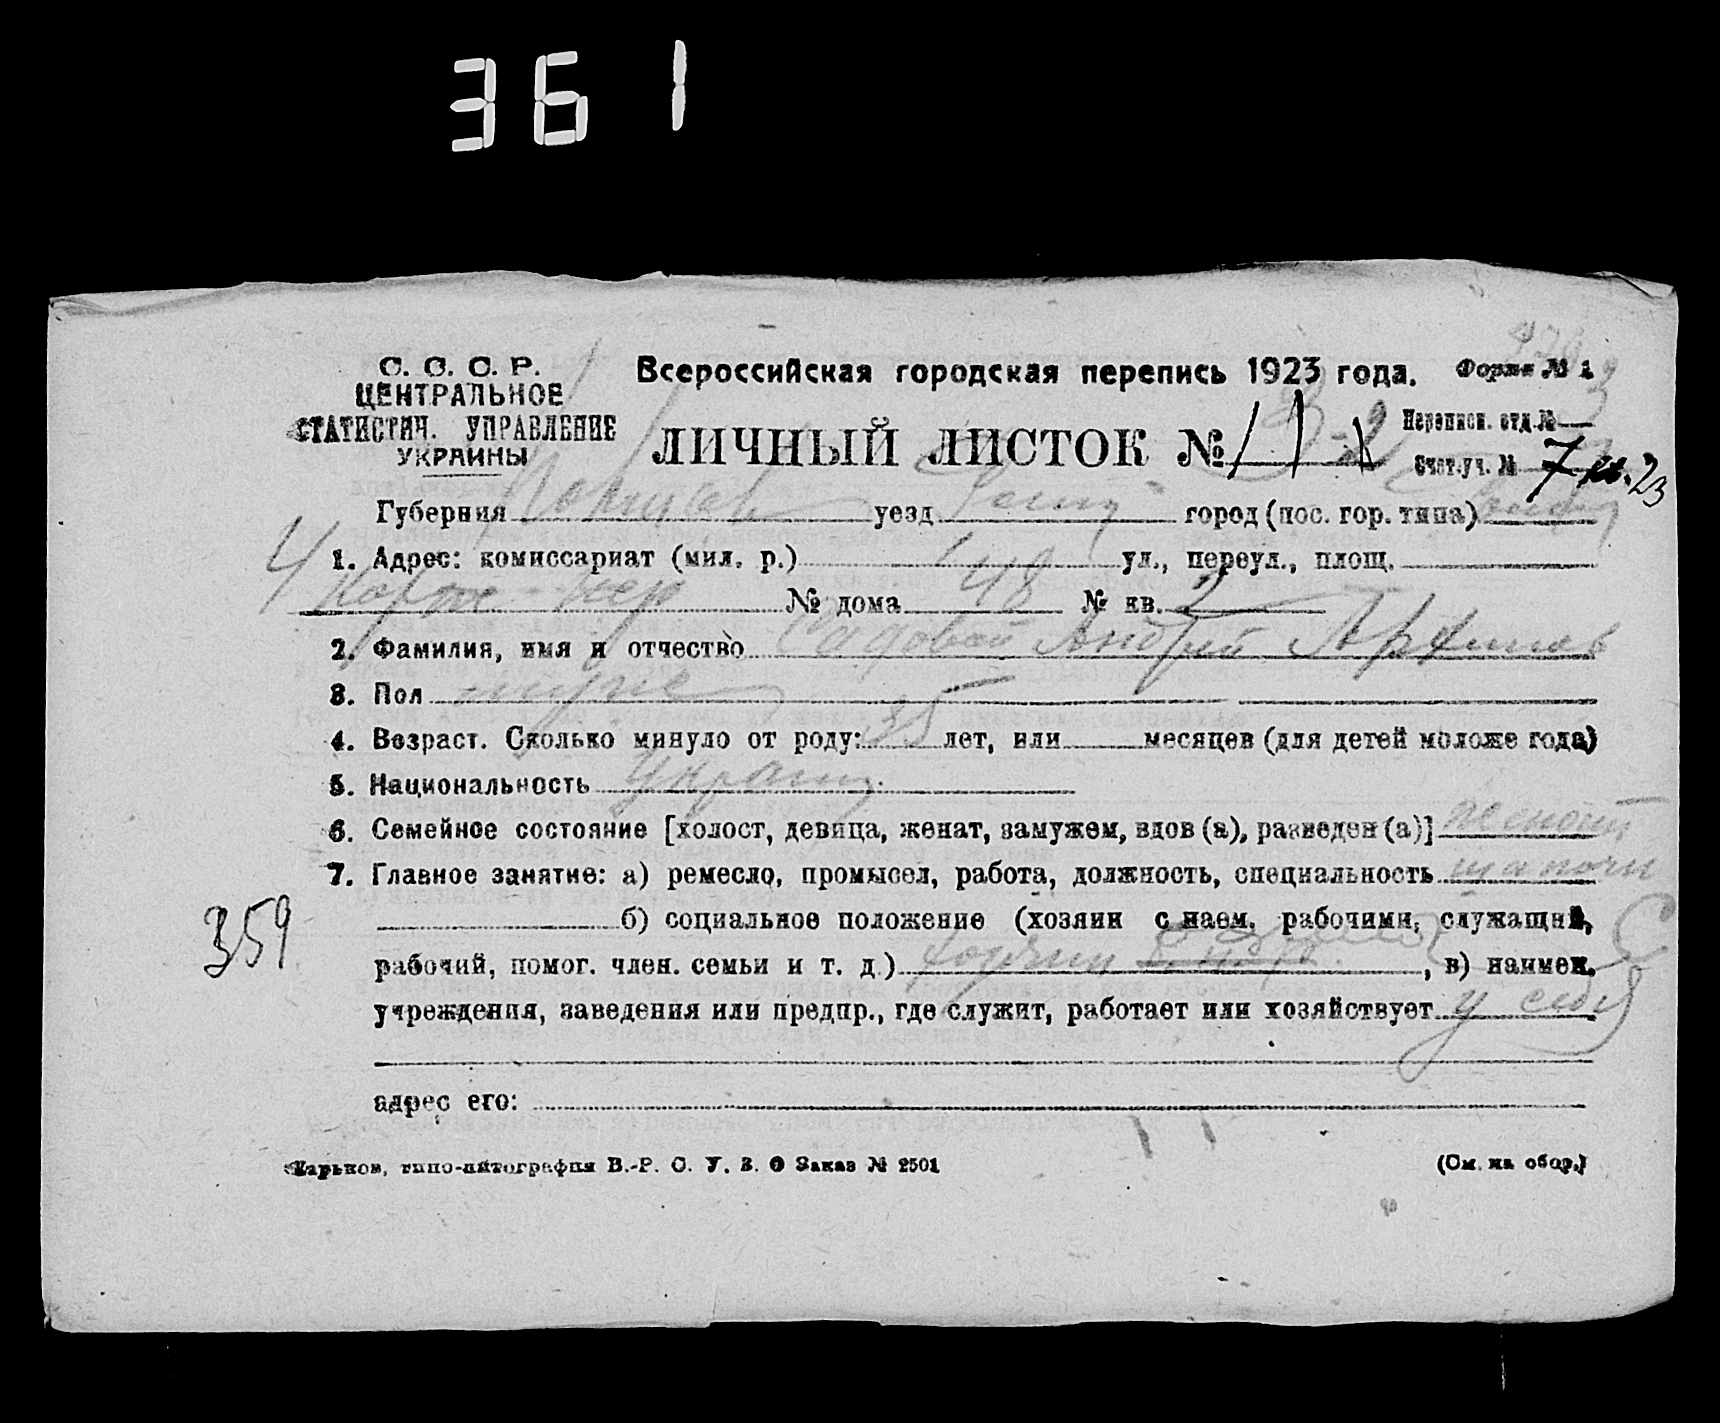 361
С. С. С. Р.
ЦЕНТРАЛЬНОЕ
СТАТИСТИЧ. УПРАВЛЕНИЕ
УКРАИНЫ
Всероссийская городская перепись 1923 года. Форма № 1
ЛИЧНЫЙ ЛИСТОК №
Переписн. отд. № 3
Счет. уч. № 7 23
Губерния уезд город (пос. гор. типа)
4
1. Адрес: комиссариат (мил. р.) ул., переул., площ.
№ дома 48 № кв. 2
2. Фамилия, имя и отчество Садовой Андрей
3. Пол муже
4. Возраст. Сколько минуло от роду: 35 лет, или месяцев (для детей моложе года)
5. Национальность Украин
6. Семейное состояние [холост, девица, женат, замужем, вдов (а), разведен (а)]
7. Главное занятие: а) ремесло, промысел, работа, должность, специальность
359
б) социальное положение (хозяин с наем. рабочими, служащий,
рабочий, помог. член. семьи и т. д.) , в) наимен.
учреждения, заведения или предпр., где служит, работает или хозяйствует у себя
адрес его:
Харьков, типо-литография В.-Р. С. У. В. Заказ № 2501
(См. на обор.)